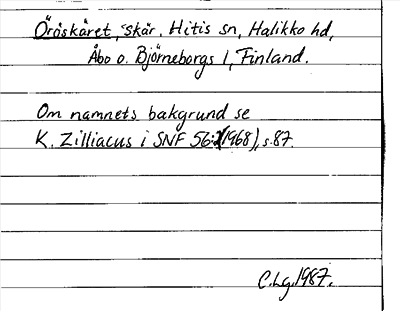 Öröskäret, skär. Hitis sn, Halikko hd,
Åbo o. Björneborgs l, Finland.
Om namnets bakgrund se
K. Zilliacus i SNF 56:2(1968), s.87.
C.Lg.1987.